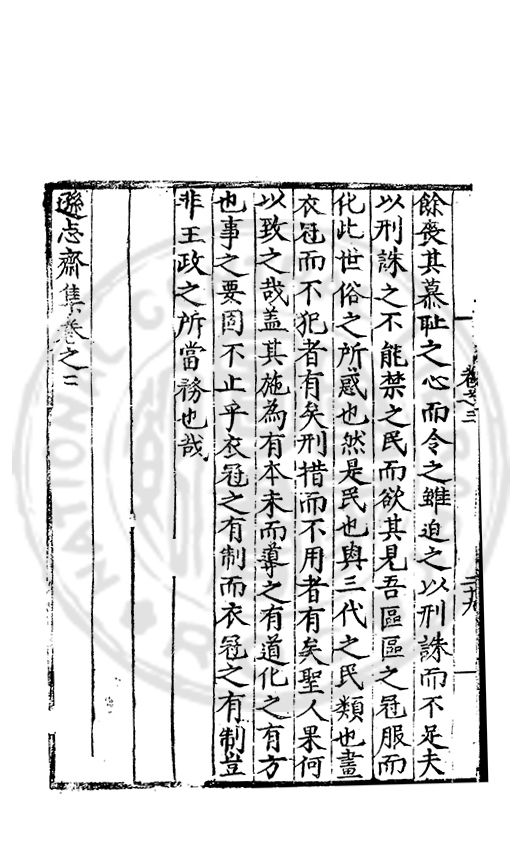 卷之三
二十九
餘喪其慕恥之心而令之雖迫之以刑誅而不足夫
以刑誅之不能禁之民而欲其見吾區區之冠服而
化此世俗之所惑也然是民也與三代之民類也畫
衣冠而不犯者有矣刑措而不用者有矣聖人果何
以致之哉盖其施為有本末而導之有道化之有方
也事之要固不止乎衣冠之有制而衣冠之有制豈
非王政之所當務也哉
遜志齋集卷之三
NATIONAL C